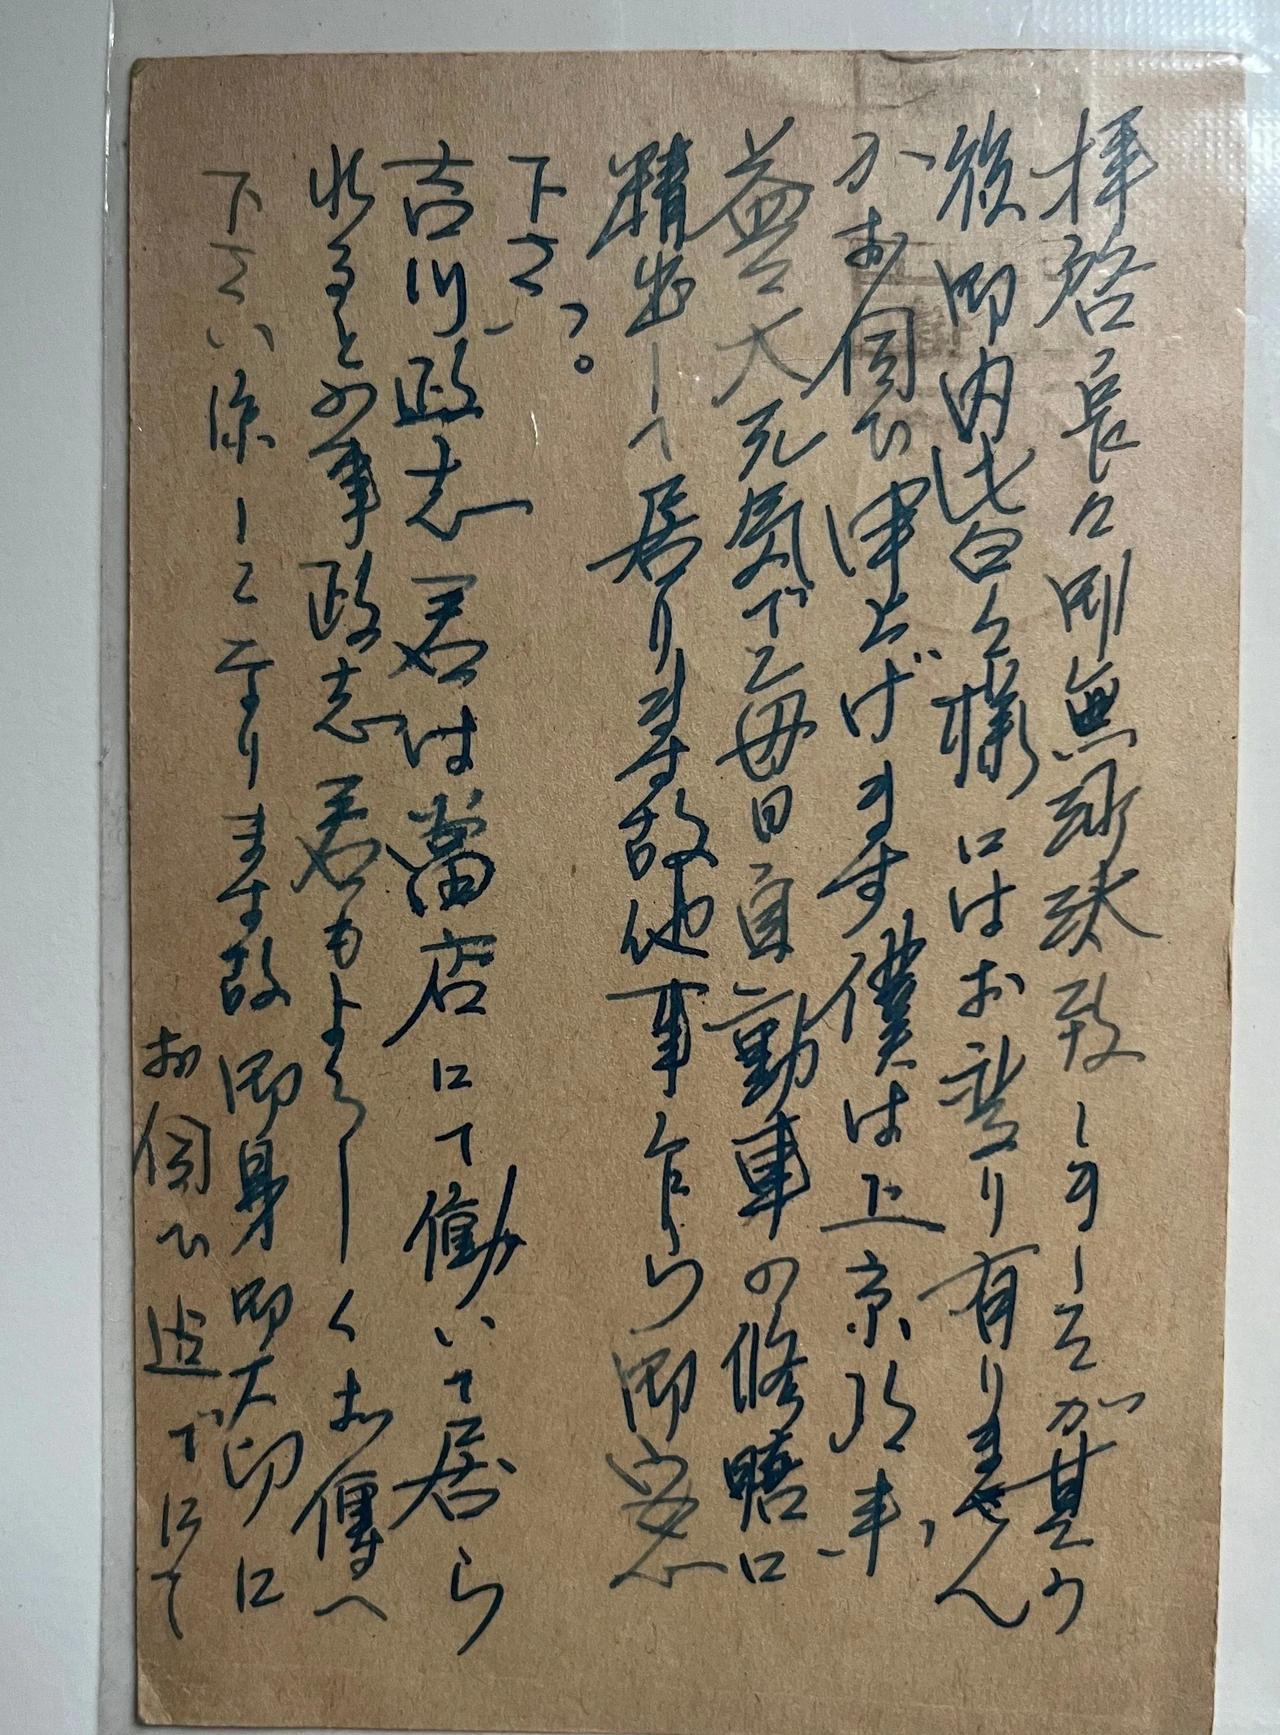 拝啓長々御無沙汰致しましたが其の
後御内皆々様にはお変り有りません
かお伺ひ申上げます僕は上京以来
益々大元気で毎日自動車の修繕に
精出して居ります故他事乍ら御安心
下さい。
吉川政志君は当店にて働いて居ら
れるとの事政志君もよろしくお傳へ
下さい涼しくなります故御身御大切に
お伺ひ迄でにて